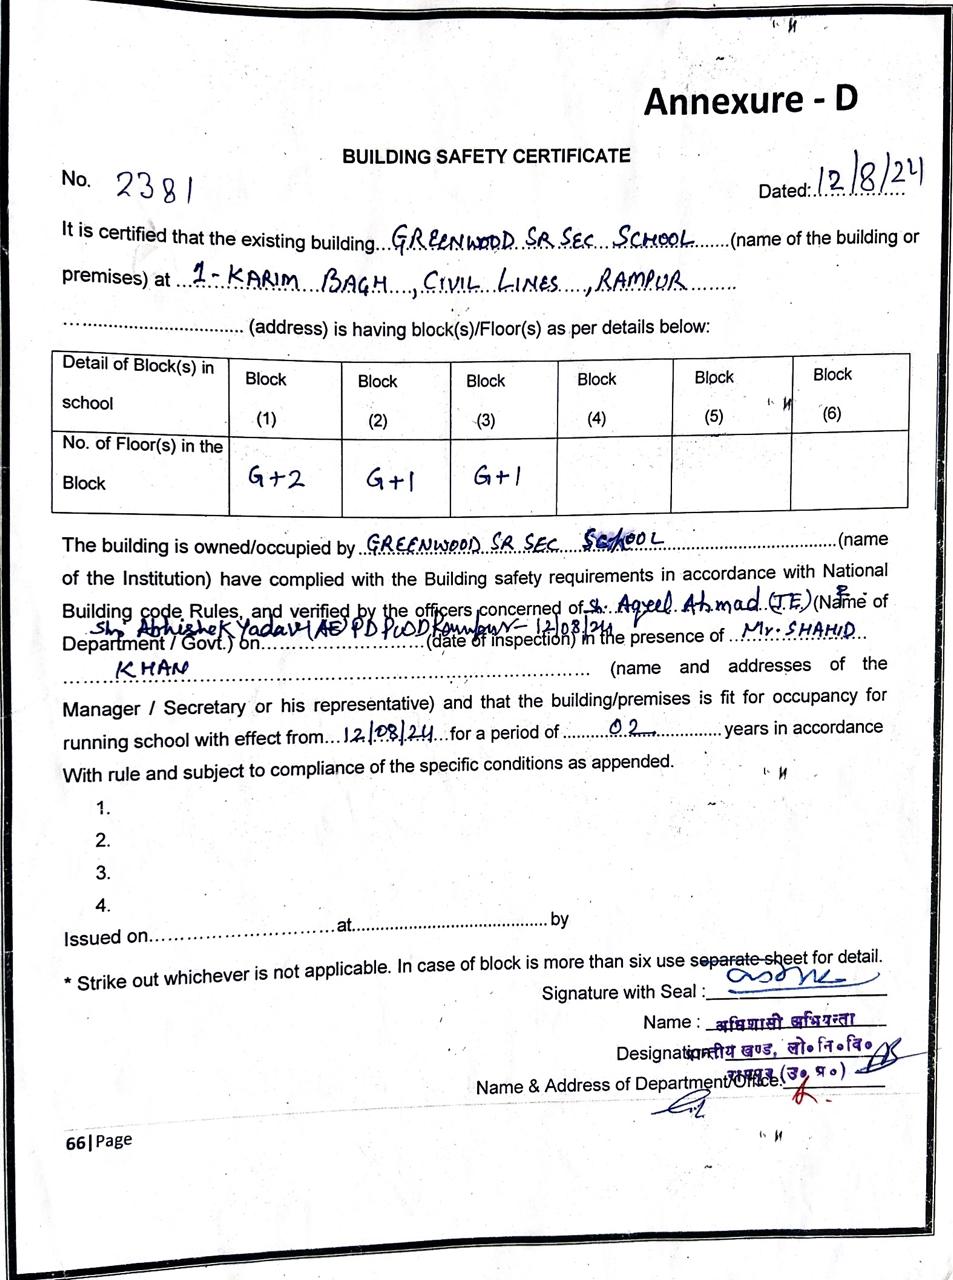 Annexure - D
BUILDING SAFETY CERTIFICATE
No. 2381
Dated:12/8/24
It is certified that the existing building...GREENWOOD SR SEC SCHOOL......(name of the building or
premises) at ...1-KARIM BAGH...,CIVIL LINES....,RAMPUR........
.................................. (address) is having block(s)/Floor(s) as per details below:
Detail of Block(s) in school Block (1) Block (2) Block (3) Block (4) Block (5) Block (6)
No. of Floor(s) in the Block G+2 G+1 G+1
The building is owned/occupied by..GREENWOOD SR SEC SCHOOL.................................(name
of the Institution) have complied with the Building safety requirements in accordance with National
Building code Rules, and verified by the officers concerned of Sh. Aqeel Ahmad (J.E.) (Name of
Sh. Abhishek Yadav (AE) PD PWD Rampur - 12/08/24
Department / Govt.) on........................(date of inspection) in the presence of ..Mr. SHAHID..
KHAN............................................................ (name and addresses of the
Manager / Secretary or his representative) and that the building/premises is fit for occupancy for
running school with effect from...12/08/24...for a period of .........02............. years in accordance
With rule and subject to compliance of the specific conditions as appended.
1.
2.
3.
4.
Issued on..................................at......................................by
* Strike out whichever is not applicable. In case of block is more than six use separate sheet for detail.
Signature with Seal :
Name : अधिशासी अभियन्ता
Designation प्रान्तीय खण्ड, लो० नि० वि०
Name & Address of Department/Office: रामपुर (उ० प्र०)
66|Page